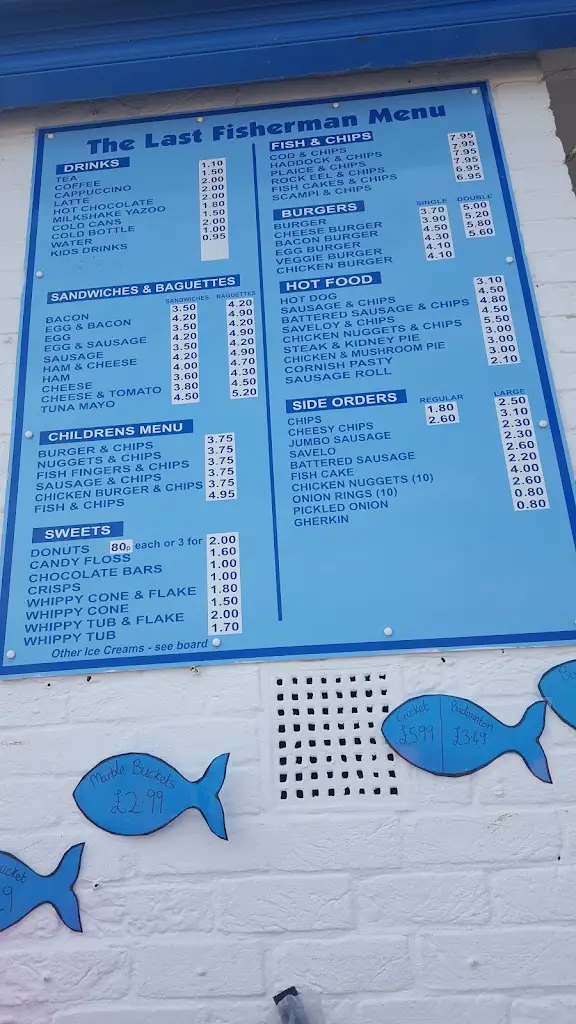 The Last Fisherman Menu
DRINKS
TEA 1.10
COFFEE 1.50
CAPPUCCINO 2.00
LATTE 2.00
HOT CHOCOLATE 2.00
MILKSHAKE YAZOO 1.80
COLD CANS 1.50
COLD BOTTLE 2.00
WATER 1.00
KIDS DRINKS 0.95
SANDWICHES & BAGUETTES
SANDWICHES BAGUETTES
BACON 3.50 4.20
EGG & BACON 4.20 4.90
EGG 3.50 4.20
EGG & SAUSAGE 4.20 4.90
SAUSAGE 3.50 4.20
HAM & CHEESE 4.20 4.90
HAM 4.00 4.70
CHEESE 3.60 4.30
CHEESE & TOMATO 3.80 4.50
TUNA MAYO 4.50 5.20
CHILDRENS MENU
BURGER & CHIPS 3.75
NUGGETS & CHIPS 3.75
FISH FINGERS & CHIPS 3.75
SAUSAGE & CHIPS 3.75
CHICKEN BURGER & CHIPS 3.75
FISH & CHIPS 4.95
SWEETS
DONUTS 80p each or 3 for 2.00
CANDY FLOSS 1.60
CHOCOLATE BARS 1.00
CRISPS 1.00
WHIPPY CONE & FLAKE 1.80
WHIPPY CONE 1.50
WHIPPY TUB & FLAKE 2.00
WHIPPY TUB 1.70
Other Ice Creams - see board
FISH & CHIPS
COD & CHIPS 7.95
HADDOCK & CHIPS 7.95
PLAICE & CHIPS 7.95
ROCK EEL & CHIPS 7.95
FISH CAKES & CHIPS 6.95
SCAMPI & CHIPS 6.95
BURGERS SINGLE DOUBLE
BURGER 3.70 5.00
CHEESE BURGER 3.90 5.20
BACON BURGER 4.50 5.80
EGG BURGER 4.30 5.60
VEGGIE BURGER 4.10
CHICKEN BURGER 4.10
HOT FOOD
HOT DOG 3.10
SAUSAGE & CHIPS 4.50
BATTERED SAUSAGE & CHIPS 4.80
SAVELOY & CHIPS 4.50
CHICKEN NUGGETS & CHIPS 5.50
STEAK & KIDNEY PIE 3.00
CHICKEN & MUSHROOM PIE 3.00
CORNISH PASTY 3.00
SAUSAGE ROLL 2.10
SIDE ORDERS REGULAR LARGE
CHIPS 1.80 2.50
CHEESY CHIPS 2.60 3.10
JUMBO SAUSAGE 2.30
SAVELO 2.30
BATTERED SAUSAGE 2.60
FISH CAKE 2.20
CHICKEN NUGGETS (10) 4.00
ONION RINGS (10) 2.60
PICKLED ONION 0.80
GHERKIN 0.80
Cricket Badminton
£5.99 £3.49
Marble Buckets
£2.99